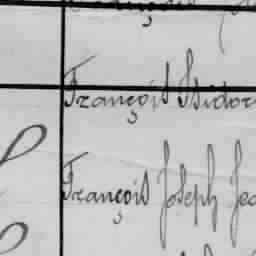 François Isidor
François Joseph Jea